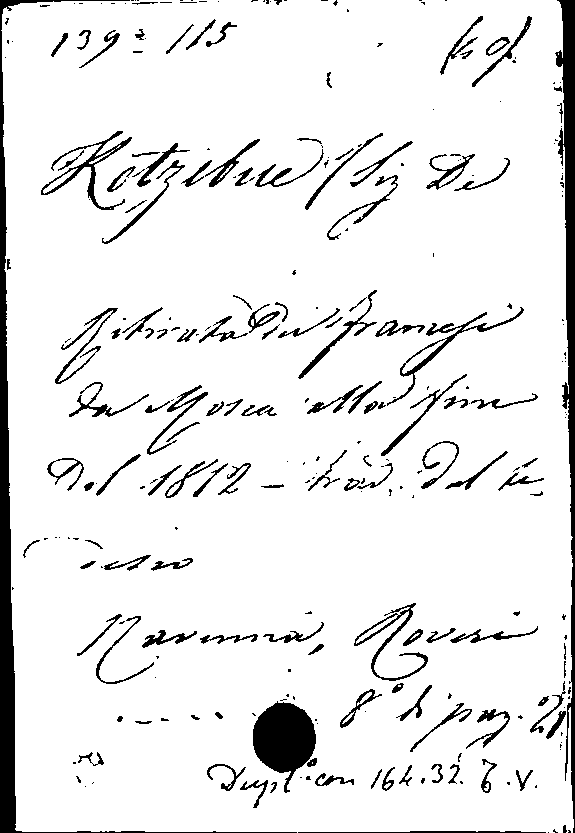 139= 115
Kotzebue (Sig De
Ritirata Dei Francesi
da Mosca alla fine
Del 1812 - trad. dal te-
desco
Ravenna, Roveri
..... 8° di pag. 21
Dupl.° con 164.32. 6.V.